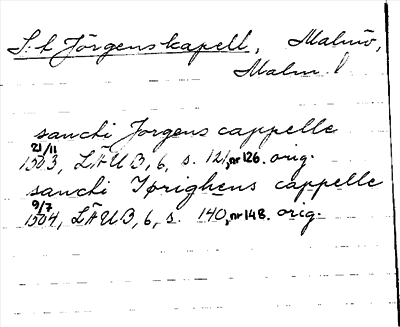 S:t Jörgens kapell, Malmö,
Malm. l
sancti Jorgens cappelle
21/11
1503, LÄUB, 6, s. 121, nr 126. orig.
sancti Iørighens cappelle
9/7
1504, LÄUB, 6, s. 140, nr 148. orig.